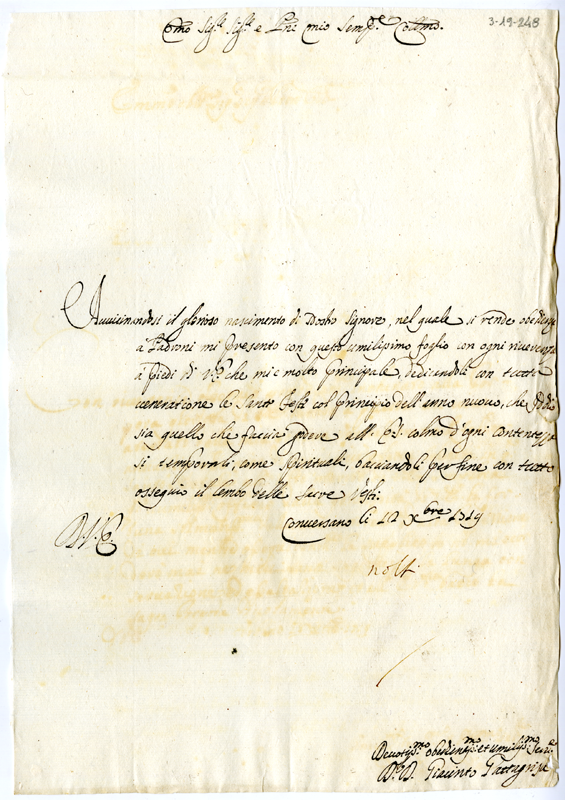 3-19-248
Emo Sigr. Sigr. e Pne. mio Sempre Collmo.
Avvicinandosi il glorioso nascimento di Nostro Signore, nel quale si rende obedienza
a Padroni mi presento con questo umilissimo foglio con ogni riverenza
a piedi di V. E. che mi è molto Principale, dedicandoli con tutta
veneratione le Sante Feste col principio dell'anno nuovo, che Iddio
sia quello che faccia all' E. S. colmo d'ogni contentezza
si temporali, come Spirituali, bacciandoli per fine con tutto
ossequio il lembo delle Sacre Vesti.
Conversano li 12 Xbre 1719
D. V. E.
Devotismo obedienmo et umilismo Serv
Dr. D. Giacinto Tarsagnija